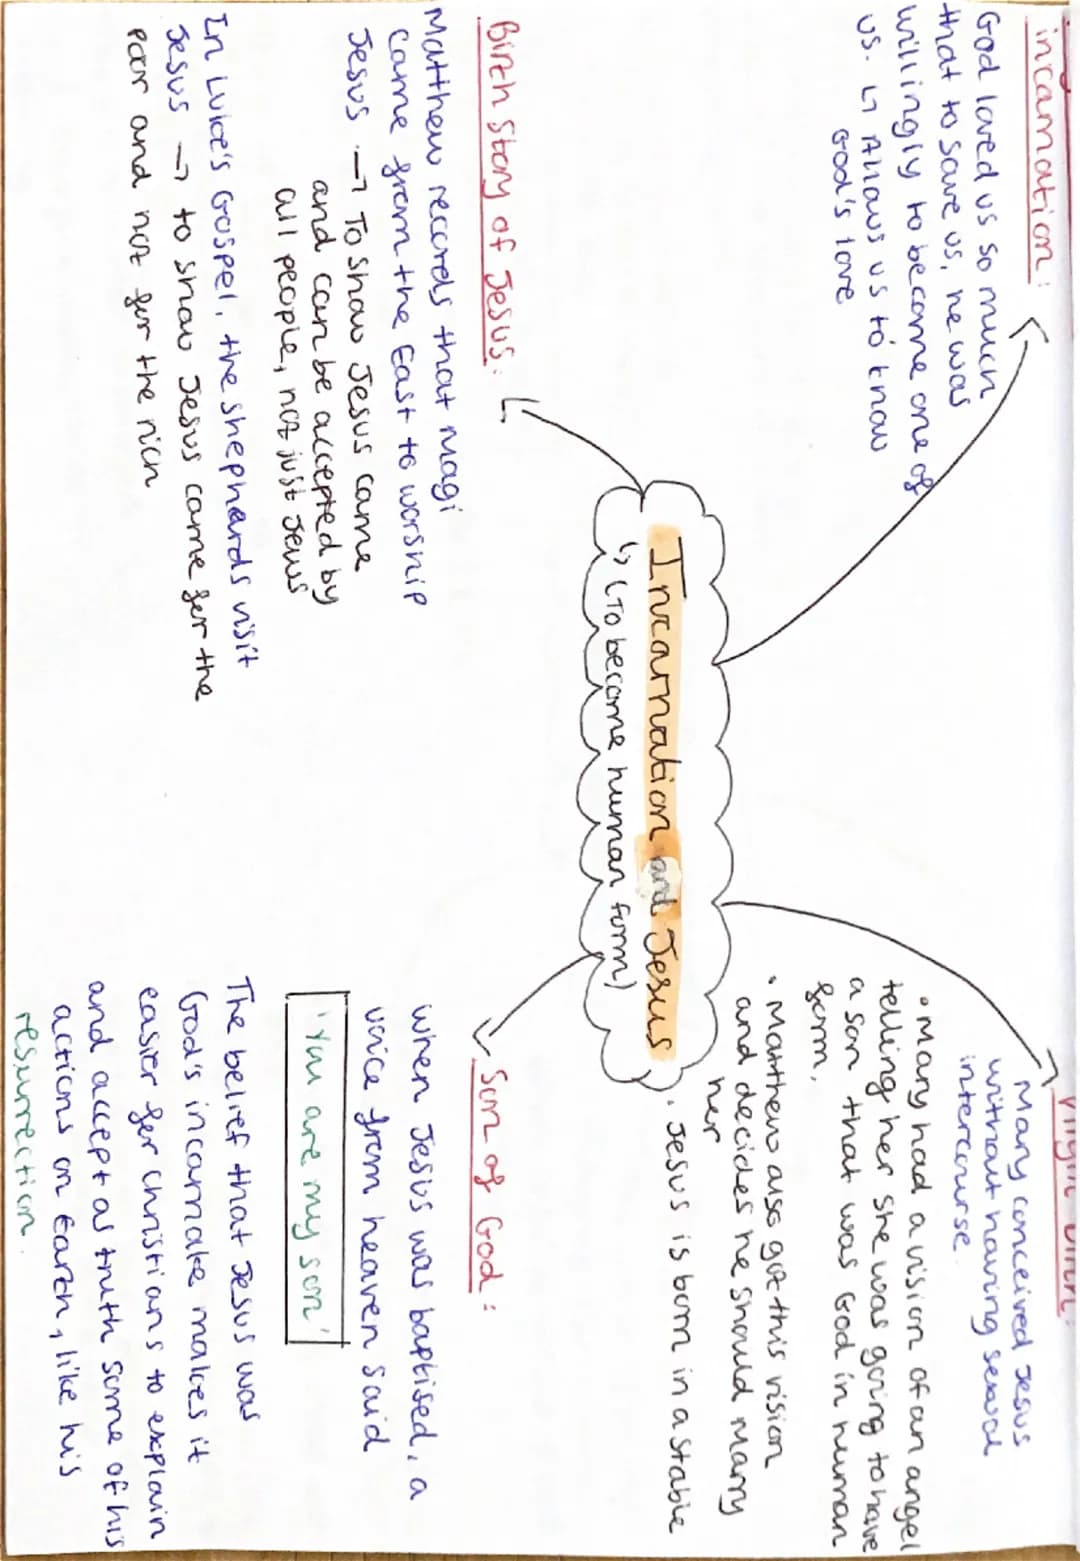 incarnation:
God loved us so much
that to save us, he was
willingly to become one of
us. ↳ Allows us to know
God's love
Virgin Birth:
Mary conceived Jesus
without having sexual
intercourse
• Mary had a vision of an angel
telling her she was going to have
a son that was God in human
form.
• Matthew also got this vision
and decides he should marry
her
• Jesus is born in a stable
Incarnation and Jesus
↳ (To become human form)
Birth story of Jesus:
Matthew records that magi
came from the East to worship
Jesus → To show Jesus came
and can be accepted by
all people, not just Jews
In Luke's Gospel, the shephards visit
Jesus → to show Jesus came for the
poor and not for the rich
Son of God:
When Jesus was baptised, a
voice from heaven said
'You are my son'
The belief that Jesus was
God's incarnate makes it
easier for Christians to explain
and accept as truth some of his
actions on Earth, like his
resurrection.